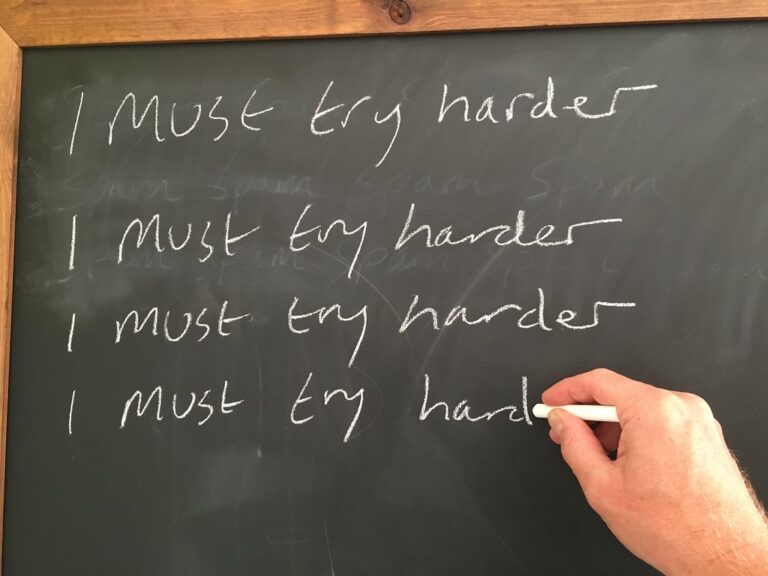 I Must try harder
spam spam spam spam
I Must try harder
spam spam spam spam spam
I Must try harder
I Must try hard